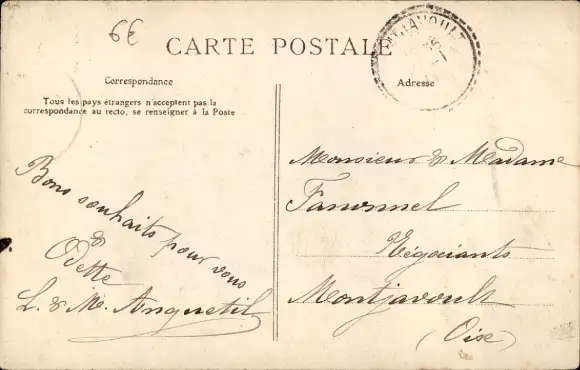 6€
CARTE POSTALE
Correspondance
Adresse
Tous les pays étrangers n'acceptent pas la
correspondance au recto, se renseigner à la Poste
Bons souhaits pour vous
&
Odette
L. & M. Anquetil
Monsieur & Madame
Négociants
Montjavoult
(Oise)